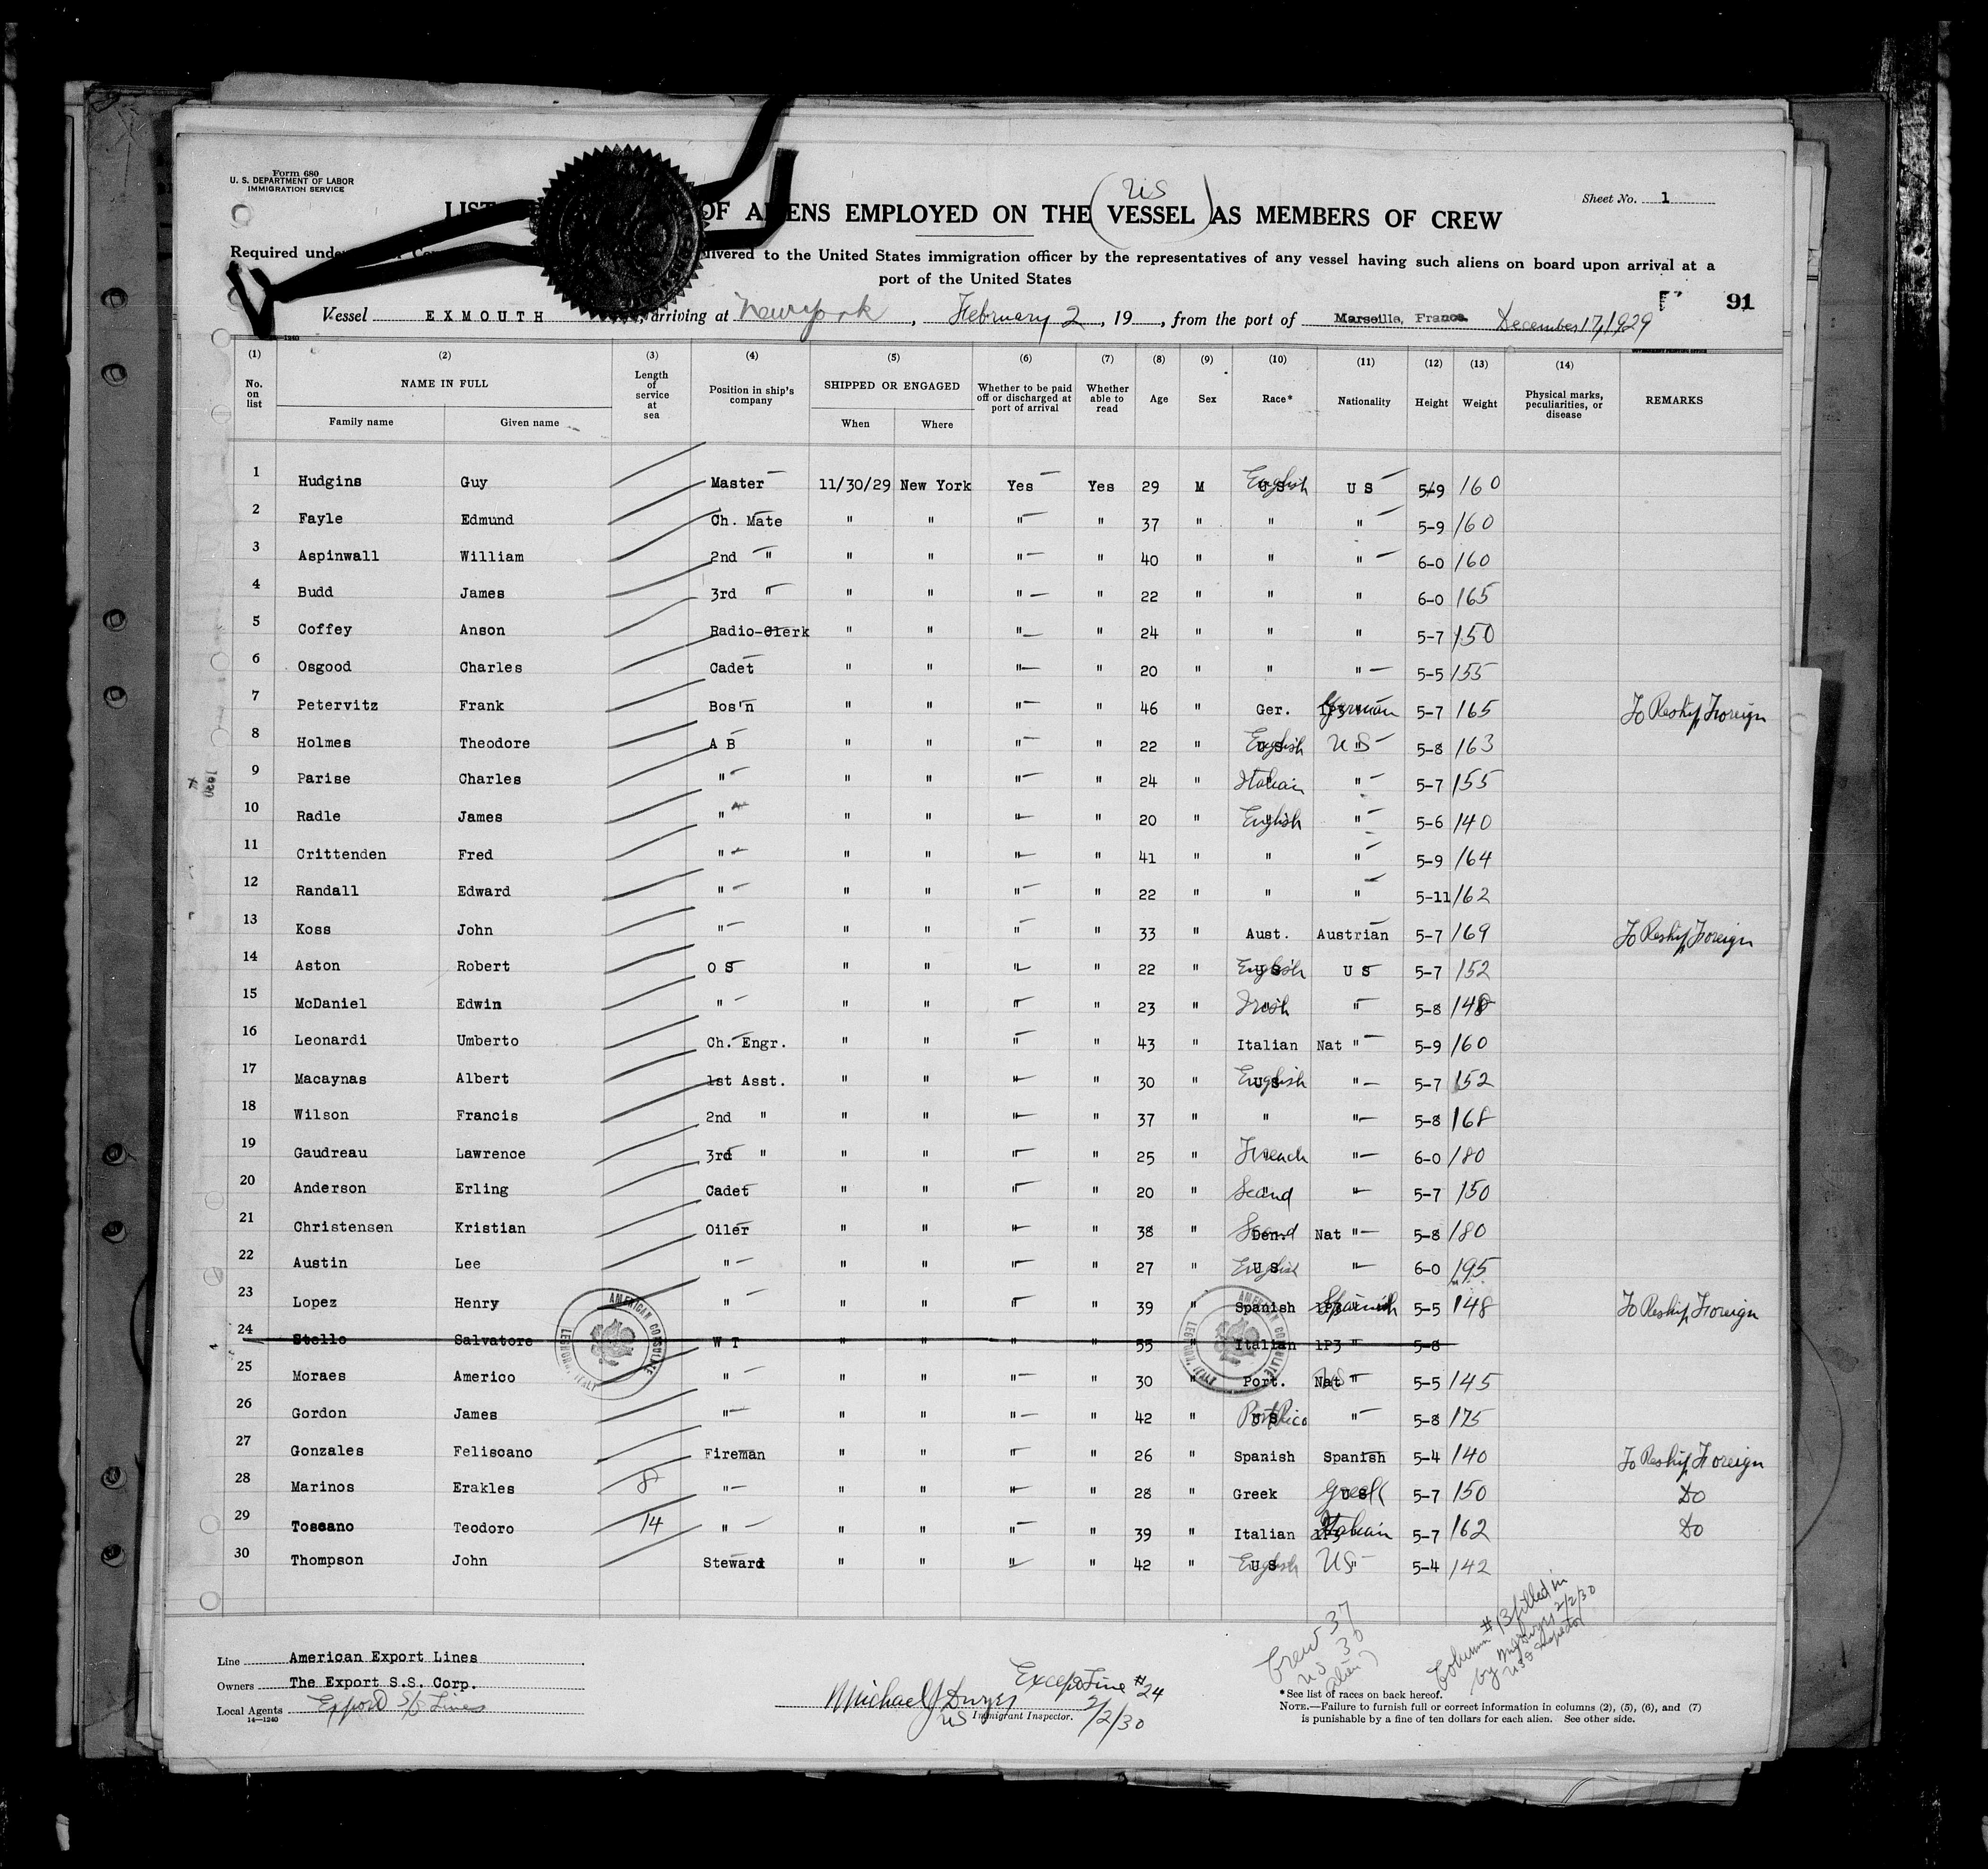 Form 680
U. S. DEPARTMENT OF LABOR
IMMIGRATION SERVICE
Sheet No. 1
US
LIST OF ALIENS EMPLOYED ON THE (VESSEL) AS MEMBERS OF CREW
Required under livered to the United States immigration officer by the representatives of any vessel having such aliens on board upon arrival at a
port of the United States
91
Vessel EXMOUTH, arriving at New York, February 2, 19, from the port of Marseille, France. December 17, 1929
(1) (2) (3) (4) (5) (6) (7) (8) (9) (10) (11) (12) (13) (14)
No. on list NAME IN FULL Family name Given name Length of service at sea Position in ship's company SHIPPED OR ENGAGED When Where Whether to be paid off or discharged at port of arrival Whether able to read Age Sex Race* Nationality Height Weight Physical marks, peculiarities, or disease REMARKS
1 Hudgins Guy Master 11/30/29 New York Yes Yes 29 M English US U S 5-9 160
2 Fayle Edmund Ch. Mate " " " " 37 " " " 5-9 160
3 Aspinwall William 2nd " " " " " 40 " " " 6-0 160
4 Budd James 3rd " " " " " 22 " " " 6-0 165
5 Coffey Anson Radio-Clerk " " " " 24 " " " 5-7 150
6 Osgood Charles Cadet " " " " 20 " " " 5-5 155
7 Petervitz Frank Bos'n " " " " 46 " Ger. 1P3 German 5-7 165 To Reship Foreign
8 Holmes Theodore A B " " " " 22 " English US US " 5-8 163
9 Parise Charles " " " " " 24 " Italian " 5-7 155
10 Radle James " " " " " 20 " English " 5-6 140
11 Crittenden Fred " " " " " 41 " " " 5-9 164
12 Randall Edward " " " " " 22 " " " 5-11 162
13 Koss John " " " " " 33 " Aust. Austrian 5-7 169 To Reship Foreign
14 Aston Robert O S " " " " 22 " English US U S 5-7 152
15 McDaniel Edwin " " " " " 23 " Irish " 5-8 148
16 Leonardi Umberto Ch. Engr. " " " " 43 " Italian Nat " 5-9 160
17 Macaynas Albert 1st Asst. " " " " 30 " English US " 5-7 152
18 Wilson Francis 2nd " " " " " 37 " " " 5-8 168
19 Gaudreau Lawrence 3rd " " " " " 25 " French " 6-0 180
20 Anderson Erling Cadet " " " " 20 " Scand " 5-7 150
21 Christensen Kristian Oiler " " " " 38 " Scand Den. Nat " 5-8 180
22 Austin Lee " " " " " 27 " English US " 6-0 195
23 Lopez Henry " " " " " 39 " Spanish 1P3 " Spanish 5-5 148 To Reship Foreign
24 Stello Salvatore W T " " " " 55 " Italian 1P3 " 5-8
25 Moraes Americo " " " " " 30 " Port. Nat " 5-5 145
26 Gordon James " " " " " 42 " Port Rico US " 5-8 175
27 Gonzales Feliscano Fireman " " " " 26 " Spanish Spanish 5-4 140 To Reship Foreign
28 Marinos Erakles 8 " " " " " 28 " Greek Greek US 5-7 150 Do
29 Toscano Teodoro 14 " " " " " 39 " Italian Italian 5-7 162 Do
30 Thompson John Steward " " " " 42 " English US US " 5-4 142
AMERICAN CONSULATE LEGHORN, ITALY
AMERICAN CONSULATE LEGHORN, ITALY
Line American Export Lines
Owners The Export S.S. Corp.
Local Agents Export S/S Lines
14—1240
Except Line #24
Michael J Dwyer
US Immigrant Inspector. 2/2/30
Crew 37
US 30
alien 7
Column #13 filled in
by 2/2/30
US Inspector
*See list of races on back hereof.
NOTE.—Failure to furnish full or correct information in columns (2), (5), (6), and (7)
is punishable by a fine of ten dollars for each alien. See other side.